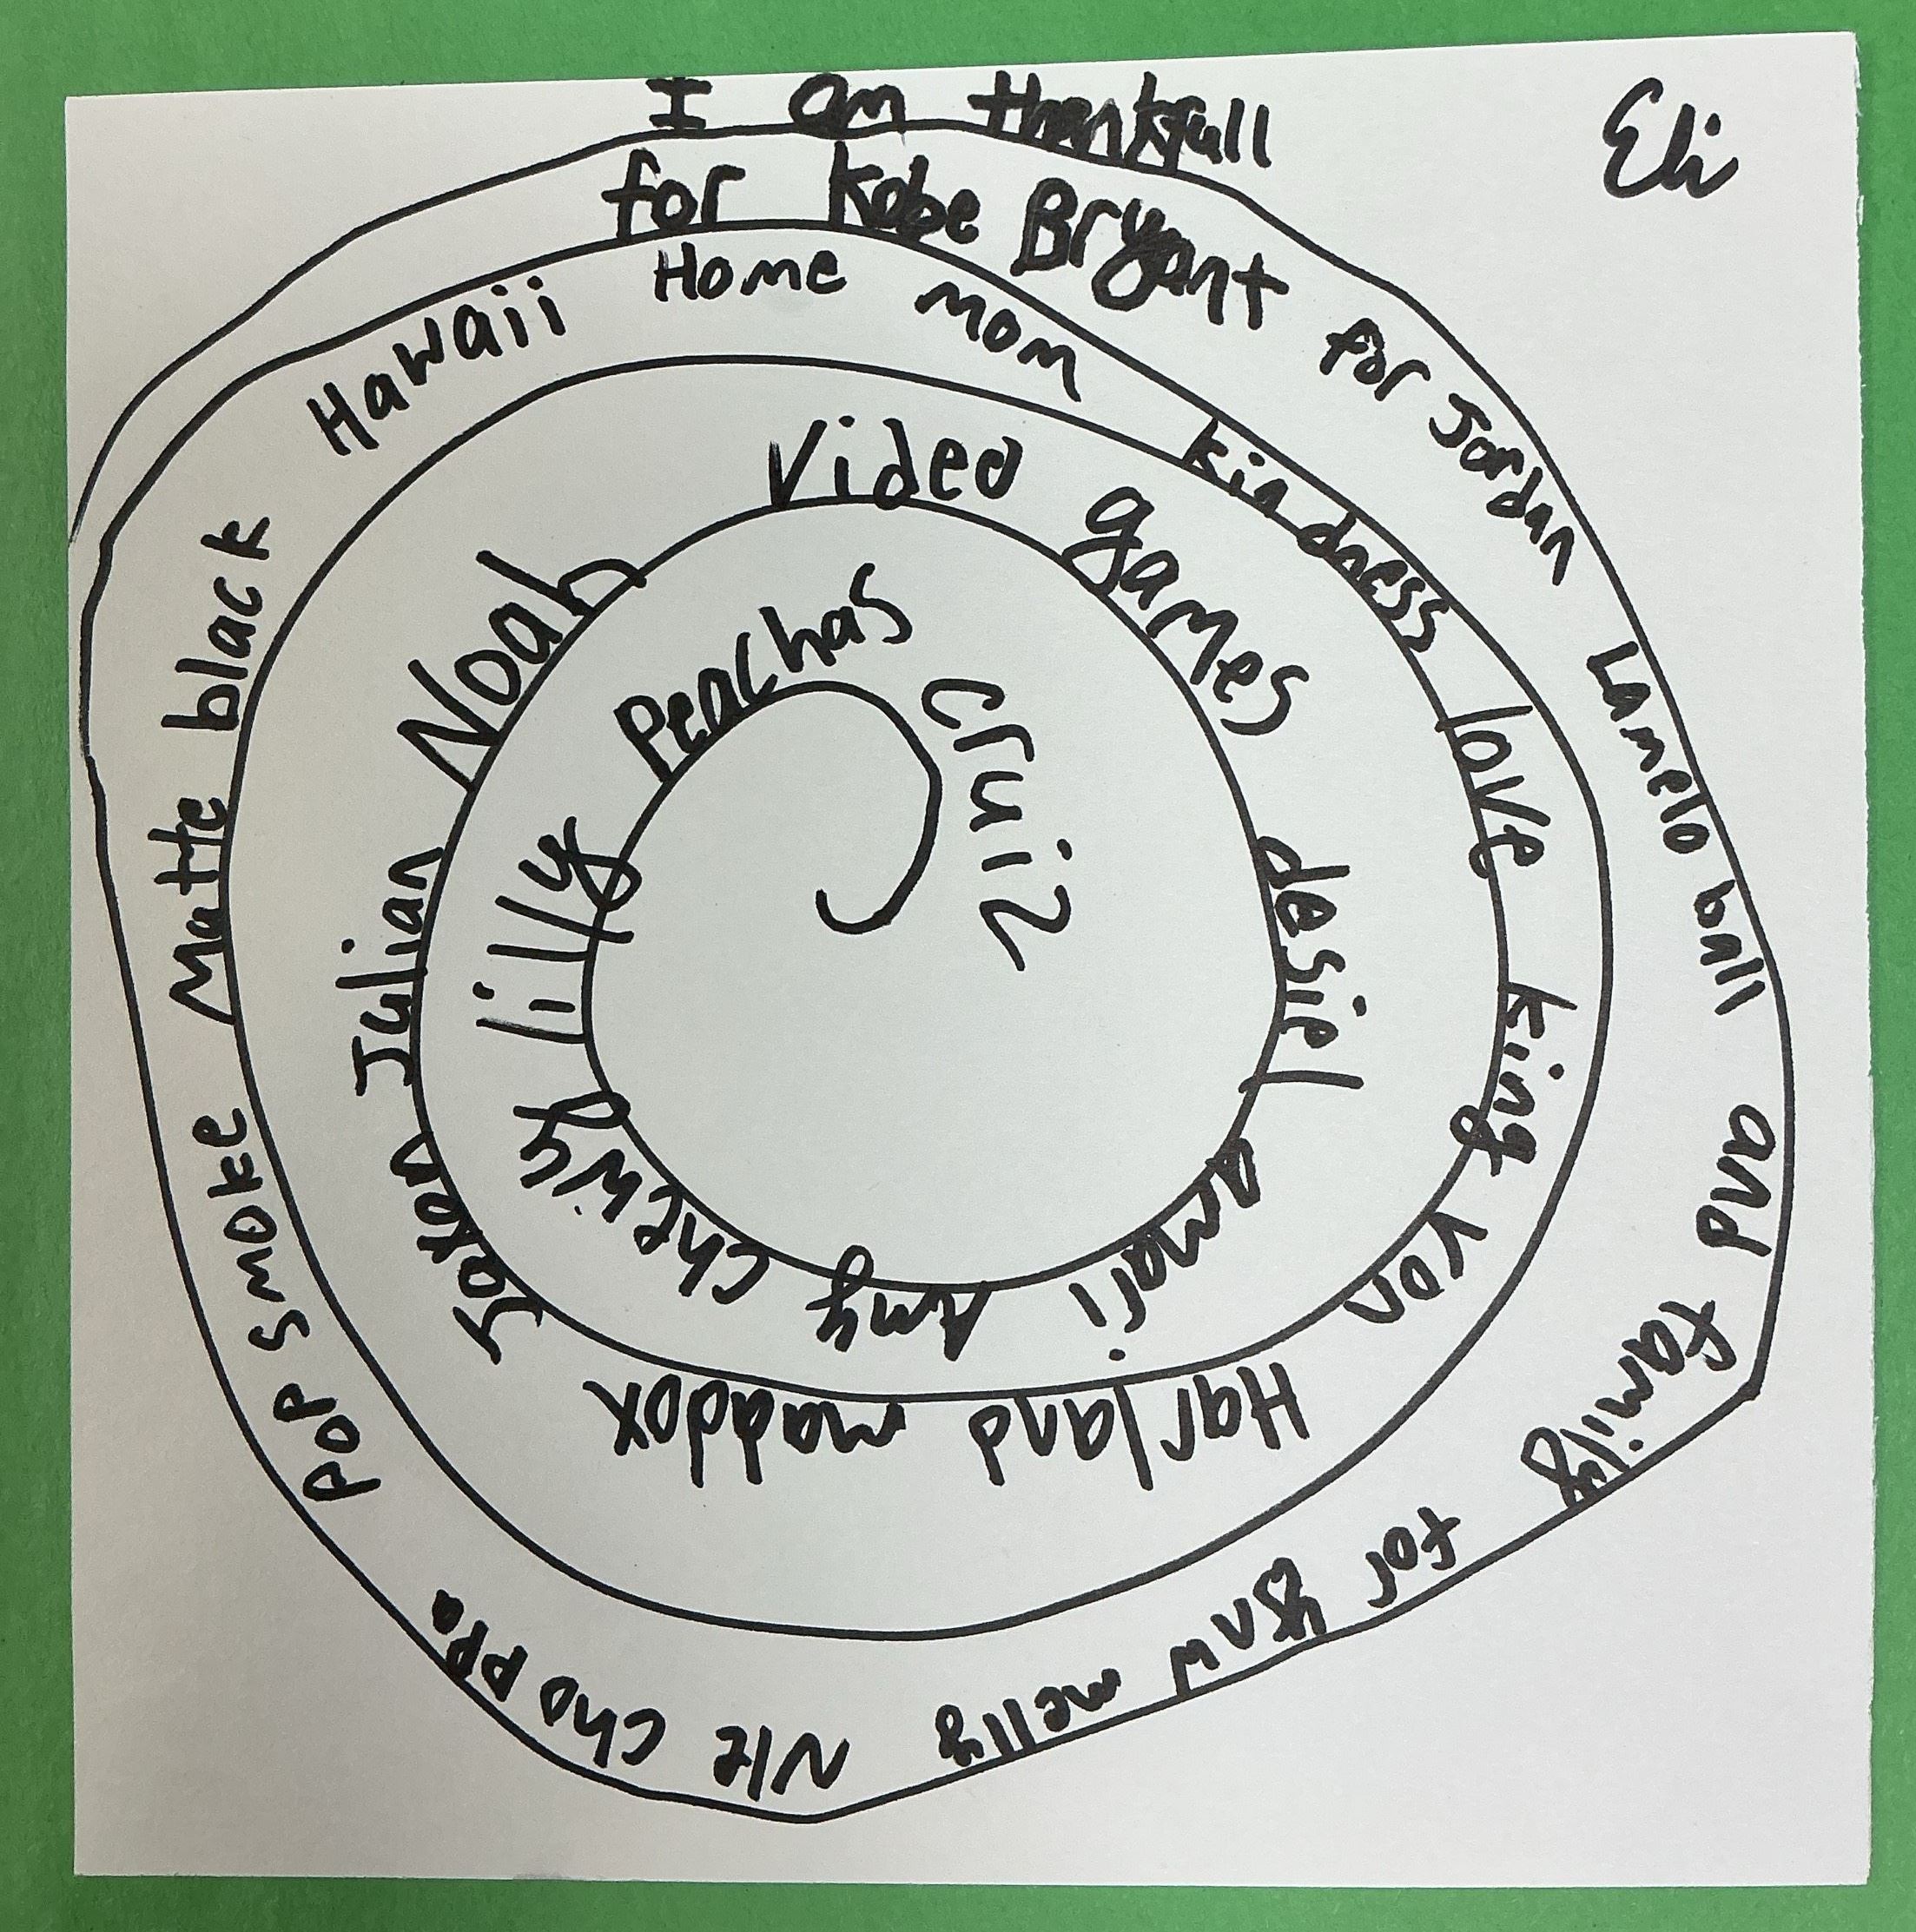 Eli
I am thankfull
for Kobe Bryant for Jordan Lamelo ball and family for ynw melly Nle choppa pop smoke Matte black Hawaii Home mom kindness love king von Harland maddox Jaxon Julian Noah Video games desiel amari Amy chewy lilly Peachas cruiz